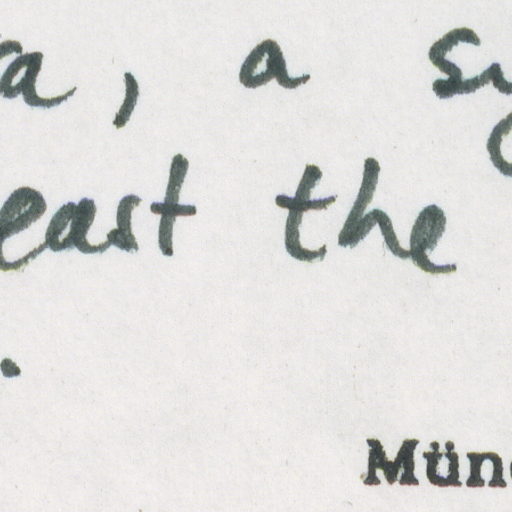 a, a sy
east the
.
Mün